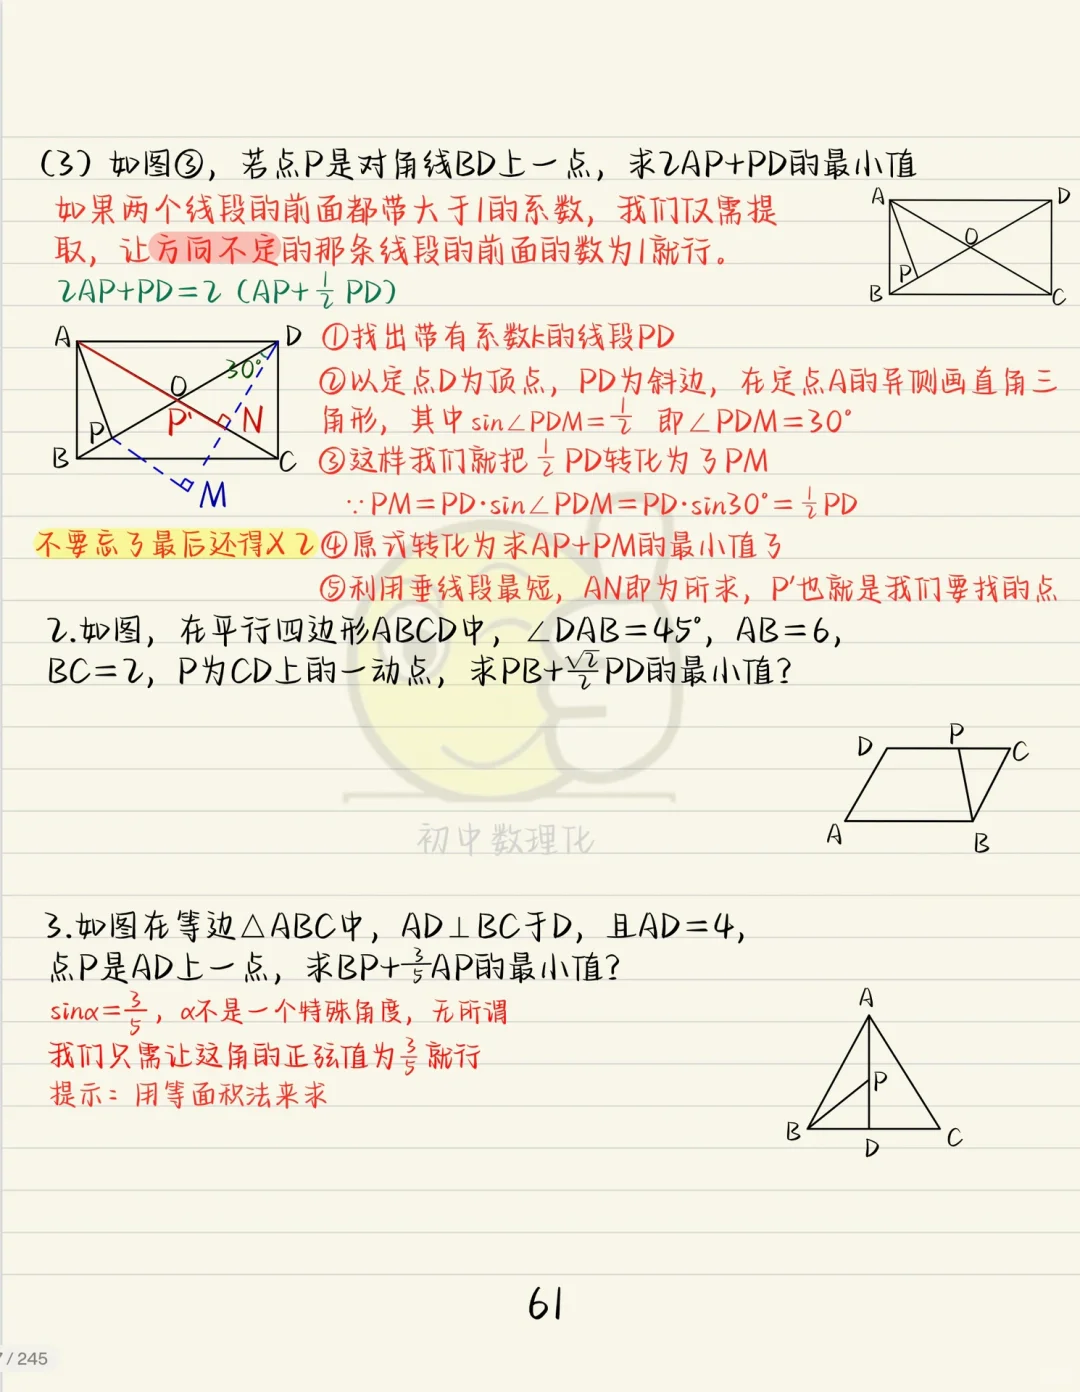 (3) 如图③，若点P是对角线BD上一点，求2AP+PD的最小值
如果两个线段的前面都带大于1的系数，我们仅需提
取，让方向不定的那条线段的前面的数为1就行。
2AP+PD=2（AP+1/2 PD）
A D O P B C
A D 30° O P' N P B C M
①找出带有系数k的线段PD
②以定点D为顶点，PD为斜边，在定点A的异侧画直角三
角形，其中sin∠PDM=1/2 即∠PDM=30°
③这样我们就把1/2PD转化为了PM
∵PM=PD·sin∠PDM=PD·sin30°=1/2PD
不要忘了最后还得X2
④原式转化为求AP+PM的最小值了
⑤利用垂线段最短，AN即为所求，P'也就是我们要找的点
2.如图，在平行四边形ABCD中，∠DAB=45°，AB=6，
BC=2，P为CD上的一动点，求PB+√2/2PD的最小值？
D P C
A B
初中数理化
3.如图在等边△ABC中，AD⊥BC于D，且AD=4，
点P是AD上一点，求BP+3/5AP的最小值？
sinα=3/5，α不是一个特殊角度，无所谓
我们只需让这角的正弦值为3/5就行
提示：用等面积法来求
A
P
B D C
61
/ 245